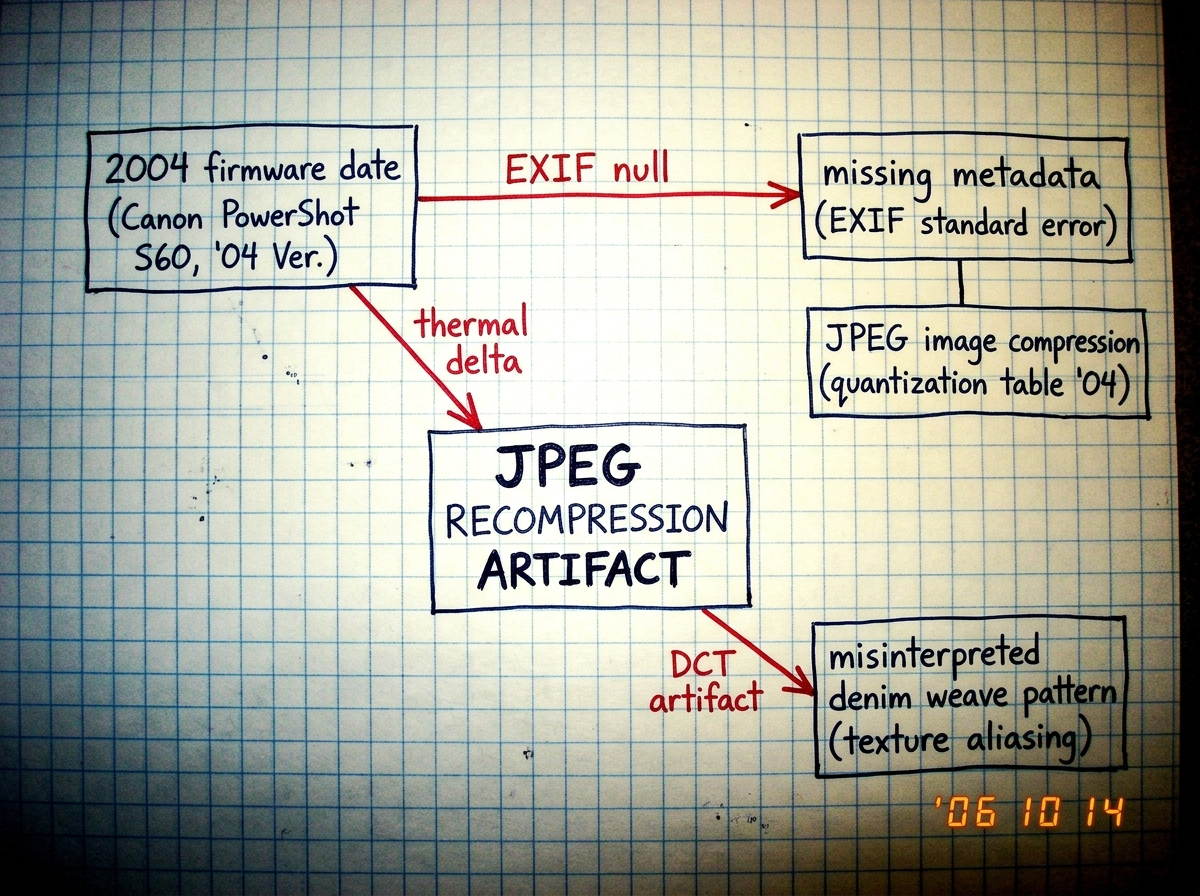 2004 firmware date
(Canon PowerShot
S60, '04 Ver.)
EXIF null
missing metadata
(EXIF standard error)
JPEG image compression
(quantization table '04)
thermal
delta
JPEG
RECOMPRESSION
ARTIFACT
DCT
artifact
misinterpreted
denim weave pattern
(texture aliasing)
'06 10 14